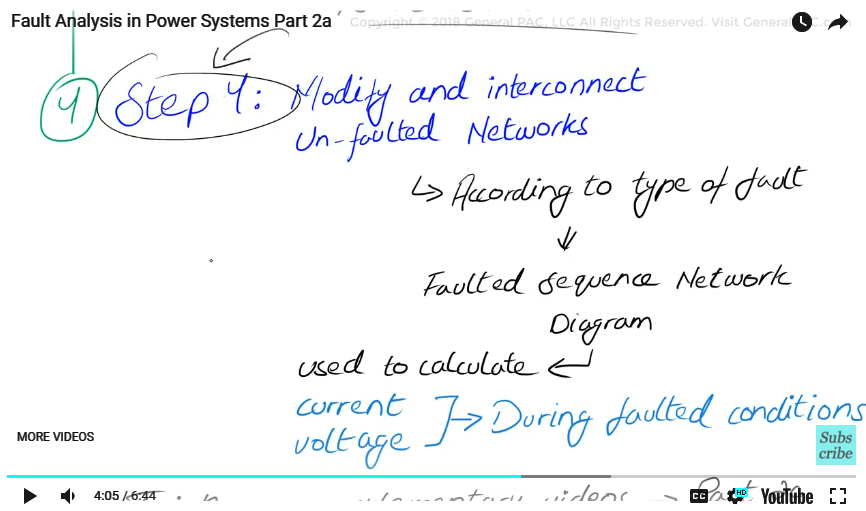 Fault Analysis in Power Systems Part 2a
Copyright © 2018 General PAC, LLC All Rights Reserved. Visit General
4 Step 4: Modify and interconnect
Un-faulted Networks
↳ According to type of fault
↓
Faulted Sequence Network
Diagram
used to calculate ↵
current
voltage ]→ During faulted conditions
MORE VIDEOS
Subs
cribe
videos → Part
4:05 / 6:44
CC HD YouTube